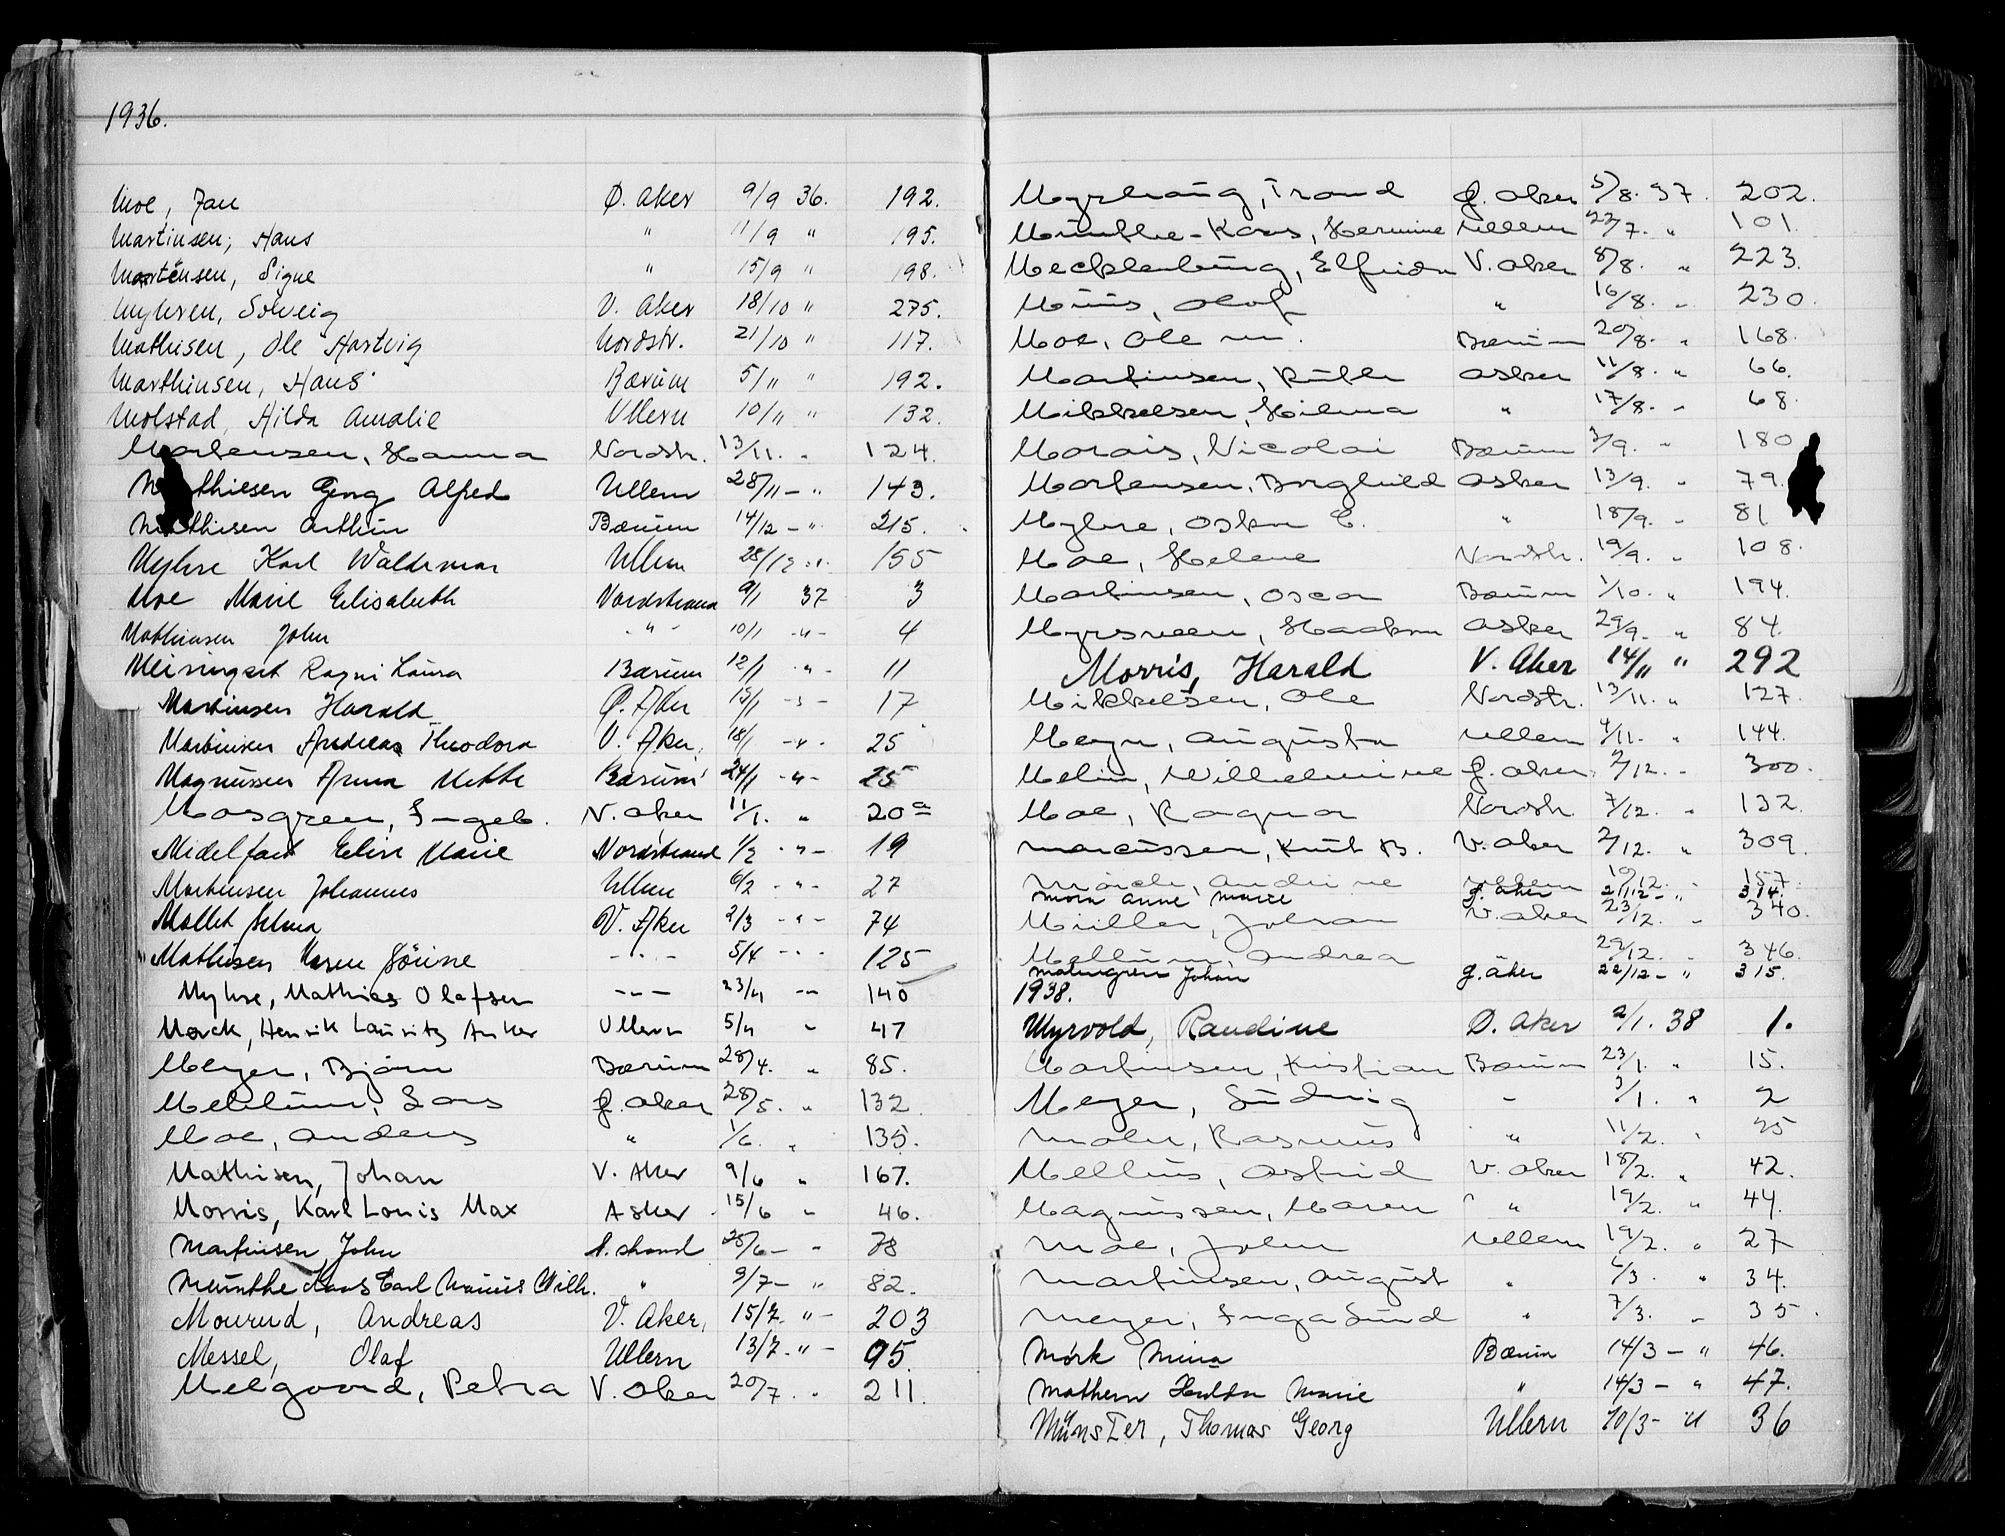 1936.
Moe, Jan Ø. Aker 9/9 36. 192.
Martinsen, Hans " 11/9 " 195.
Martensen, Signe " 15/9 " 198.
Myhren, Solveig V. Aker 18/10 " 275.
Mathisen, Ole Hartvig Nordstr. 21/10 " 117.
Marthinsen, Hans Bærum 5/11 " 192.
Molstad, Hilda Amalie Ullern 10/11 " 132.
Mortensen, Hanna Nordstr. 13/11. " 124.
Mathiesen Georg Alfred Ullern 28/11 - " 143.
Mathisen Arthur Bærum 14/12 - " 215.
Myhre Karl Waldemar Ullern 28/12 " 155
Moe Marie Elisabeth Nordstrand 9/1 37 3
Mathiesen John - " - 10/1 - " - 4
Meisingset Ragni Laura Bærum 12/1 - " - 11
Martinsen Harald Ø. Aker 15/1 - " - 17
Martinsen Andreas Theodora V. Aker, 18/1 - " - 25
Magnussen Anna Mette Bærum 24/1 - " - 25
Mosgren, Ingeb. V. Aker 11/1. " 20a
Midelfart Elise Marie Nordstrand 1/2 - " - 19
Martinsen Johannes Ullern 6/2 - " - 27
Mallet Selma V. Aker 2/3 - " - 74
Mathisen Karen Jörine - " - 5/4 - " - 125
Myhre, Mathias Olafsen - " - 23/4 - " - 140
Mørck, Henrik Lauritz Anker Ullern 5/4 " 47
Meyer, Bjørn Bærum 28/4. " 85.
Mehlum, Lars Ø. Aker 28/5. " 132.
Moe, Anders " 1/6. " 135.
Mathisen, Johan V. Aker 9/6 " 167.
Morris, Karl Louis Max Asker 15/6 " 46.
Martinsen, John N. strand 28/6 - " 78
Munthe Kaas Carl Marius Wilh. " 9/7 - " 82.
Mourud, Andreas V. Aker, 15/7. " - 203
Messel, Olaf Ullern 13/7. " - 95.
Melgaard, Petra V. Aker 20/7. " 211.
Myrhaug, Trond Ø. Aker 5/8. 37. 202.
Munthe-Kaas, Hermine Ullern 22/7. " 101.
Mecklenburg, Elfrida V. Aker 8/8. " 223.
Muus, Olaf " 16/8. " 230.
Moe, Ole M. Bærum 20/8. " 168.
Martinsen, Ruth Asker 11/8. " 66.
Mikkelsen, Hilma " 17/8. " 68.
Morais, Nicolai Bærum 3/9. " 180
Mortensen, Borghild Asker 13/9. " 79.
Myhre, Oskar E. " 18/9. " 81
Moe, Helene Nordstr. 19/9. " 108.
Martinsen, Oscar Bærum 1/10. " 194.
Myrsveen, Haakon Asker 29/9. " 84.
Morris, Harald V. Aker 14/11 " 292
Mikkelsen, Ole Nordstr. 13/11. " 127.
Meyer, Augusta Ullern 4/11. " 144.
Melin, Wilhelmine Ø. Aker 2/12. " 300.
Moe, Ragna Nordstr. 7/12. " 132.
Marcussen, Knut B. V. Aker 2/12. " 309.
Mörch, Andrine Ullern 10/12. " 157.
Moen Anne Marie Ø. Aker 21/12 - " 314.
Müller, Johan V. Aker 23/12. " 340.
Mellum, Andrea 29/12. " 346.
Malmgren Johan Ø. Aker 22/12 - " 315.
1938.
Myrvold, Randine Ø. Aker 2/1. 38 1.
Martinsen, Kristian Bærum 23/1. " 15.
Meyer, Ludvig " 3/1. " 2
Mohr, Rasmus " 11/2. " 25
Mellius, Astrid V. Aker 18/2. " 42.
Magnussen, Maren " 19/2. " 44.
Moe, John Ullern 19/2. " 27
Martinsen, August " 6/3. " 34.
Meyer, Inga Lund " 7/3. " 35.
Mørk Mina Bærum 14/3 - " 46.
Mathern Hulda Marie " 14/3 - " 47.
Münster, Thomas Georg Ullern 10/3 - " 36